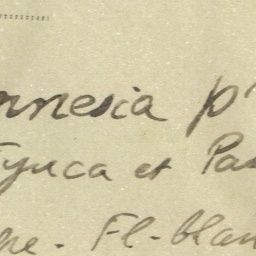 nnesia p'
Tynca et Pa
he. Fl-blan